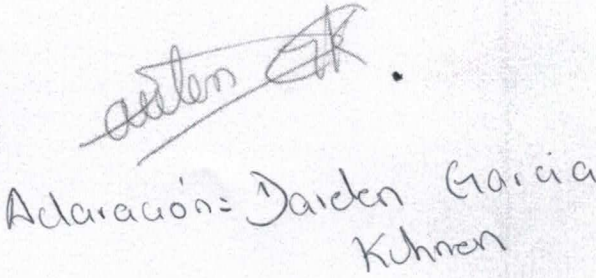 Aclaración= Darden Garcia
Kuhnen